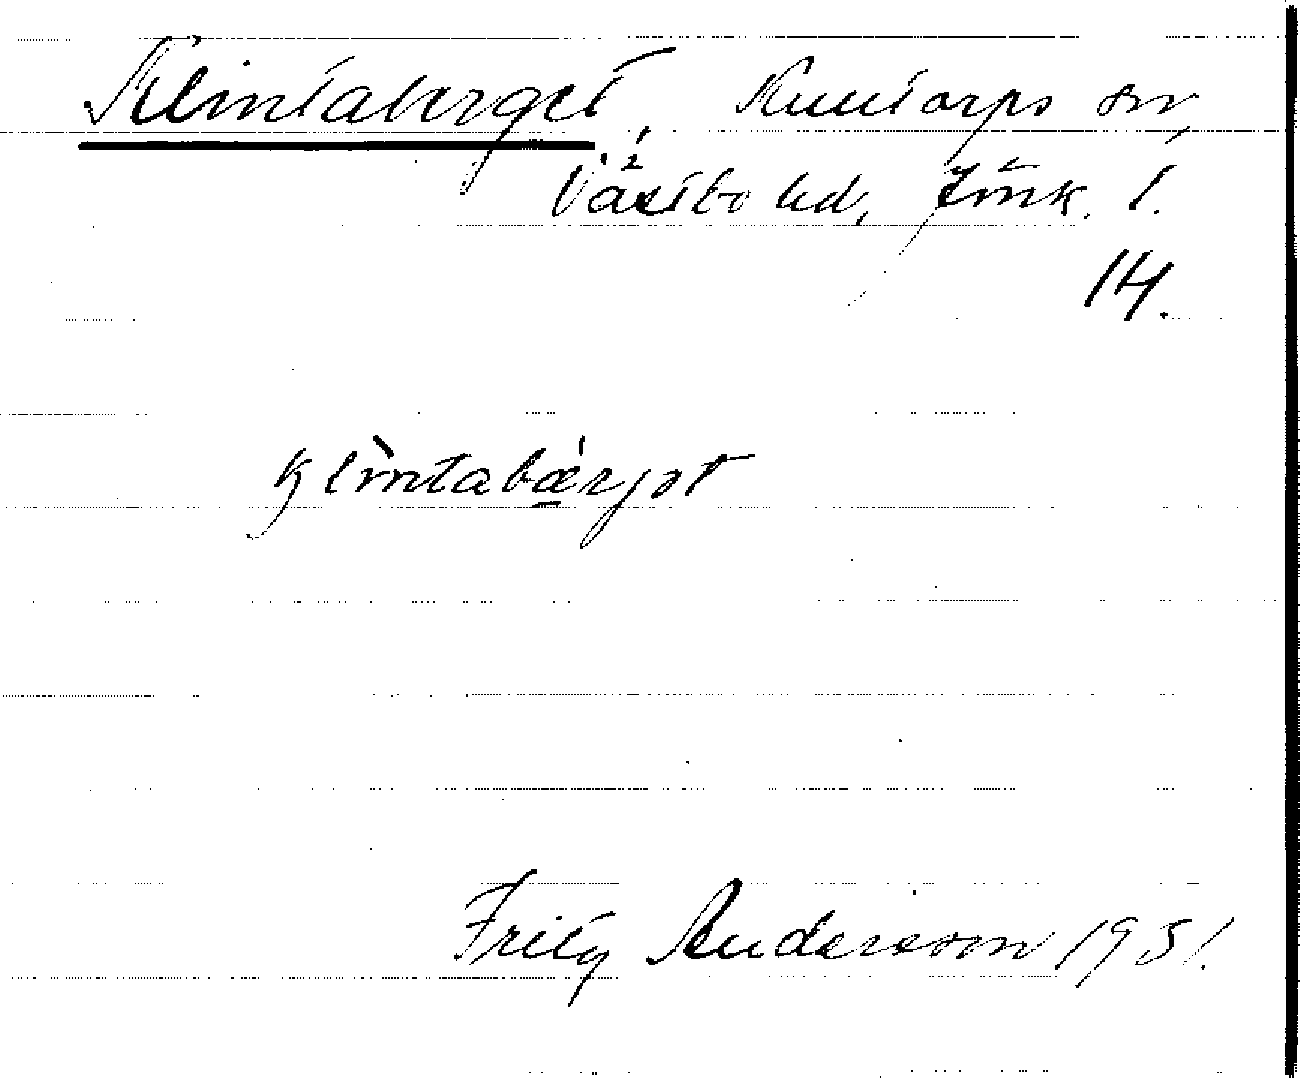 Klintaberget, Kulltorps sn,
Västbo hd, Jönk. l.
14.
klìntabǽ̠rjət
Fritz Andersson 1931.